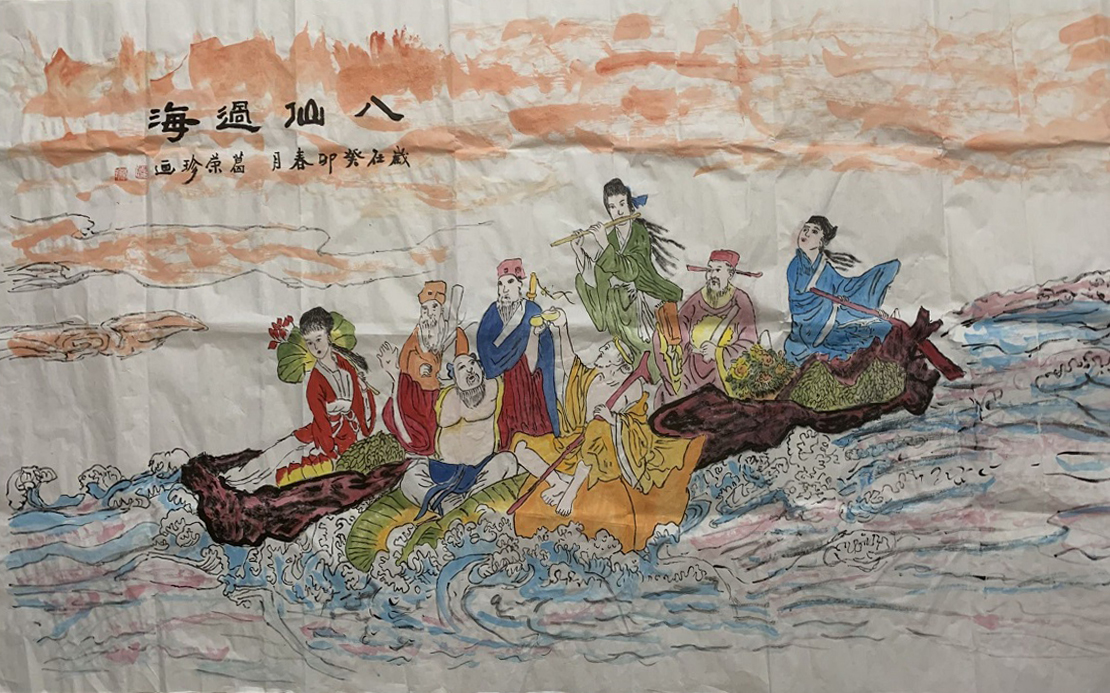 八仙過海
歲在癸卯春月 葛荣珍画